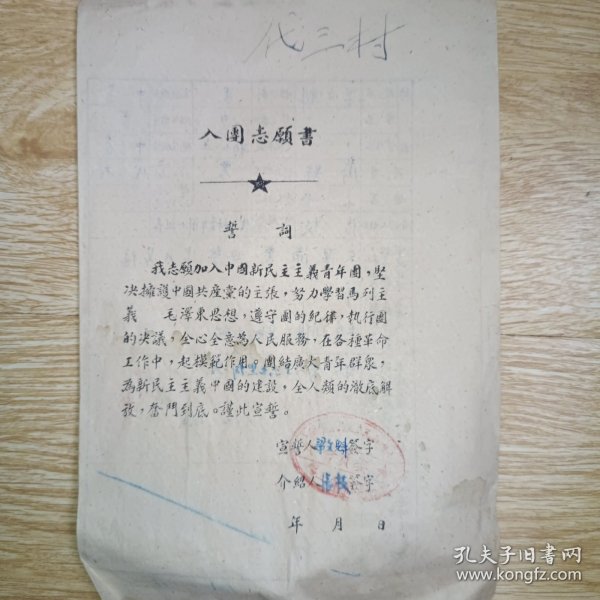 代三村
入團志願書
誓詞
我志願加入中國新民主主義青年團，堅
决擁護中國共産黨的主張，努力學習馬列主
義 毛澤東思想，遵守團的紀律，执行團
的决議，全心全意為人民服務，在各種革命
工作中，起模範作用。團結廣大青年群眾，
為新民主主義中國的建設，全人類的澈底解
放，奮鬥到底。謹此宣誓。
宣誓人 簽字
介紹人 簽字
年 月 日
孔夫子旧書网
www.kongfz.com